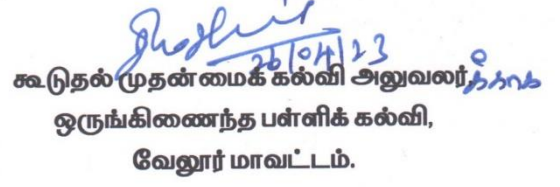 26/04/23
கூடுதல் முதன்மைக் கல்வி அலுவலர்,க்காக
ஒருங்கிணைந்த பள்ளிக் கல்வி,
வேலூர் மாவட்டம்.